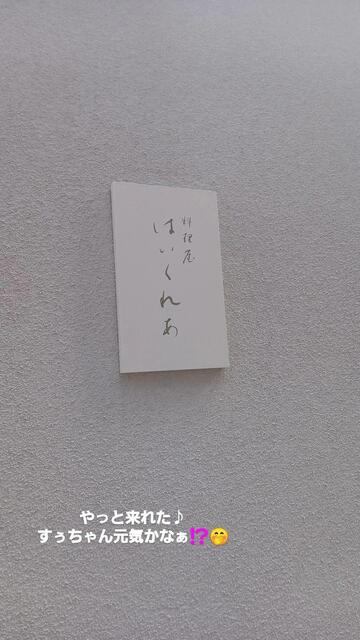 料理屋
はいくれあ
やっと来れた♪
すぅちゃん元気かなぁ⁉️🤭